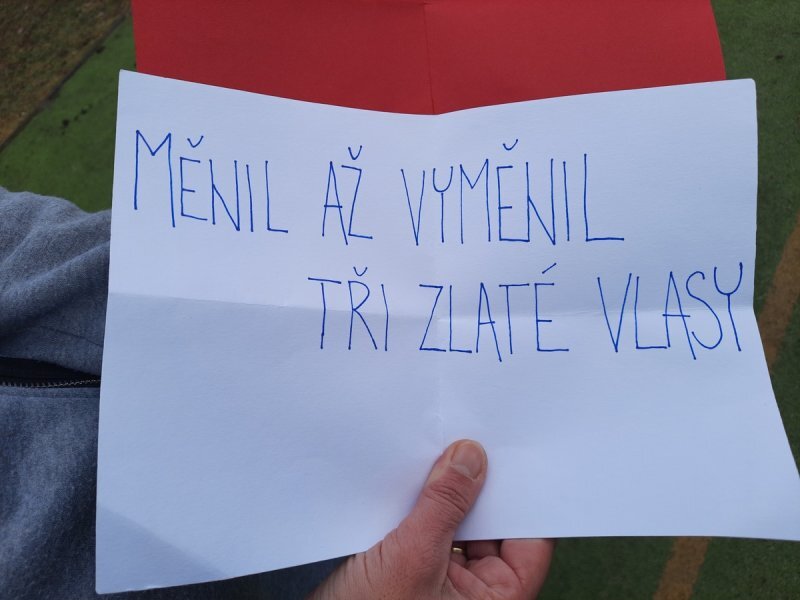 MĚNIL AŽ VYMĚNIL
TŘI ZLATÉ VLASY